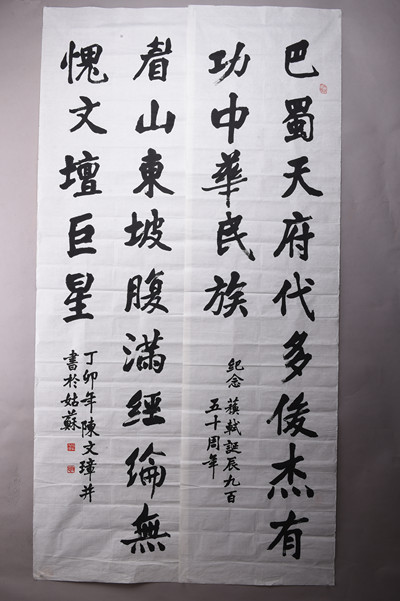 巴蜀天府代多俊杰有
功中華民族
紀念蘇軾誕辰九百
五十周年
眉山東坡腹滿經綸無
愧文壇巨星
丁卯年陳文璋并
書於姑蘇